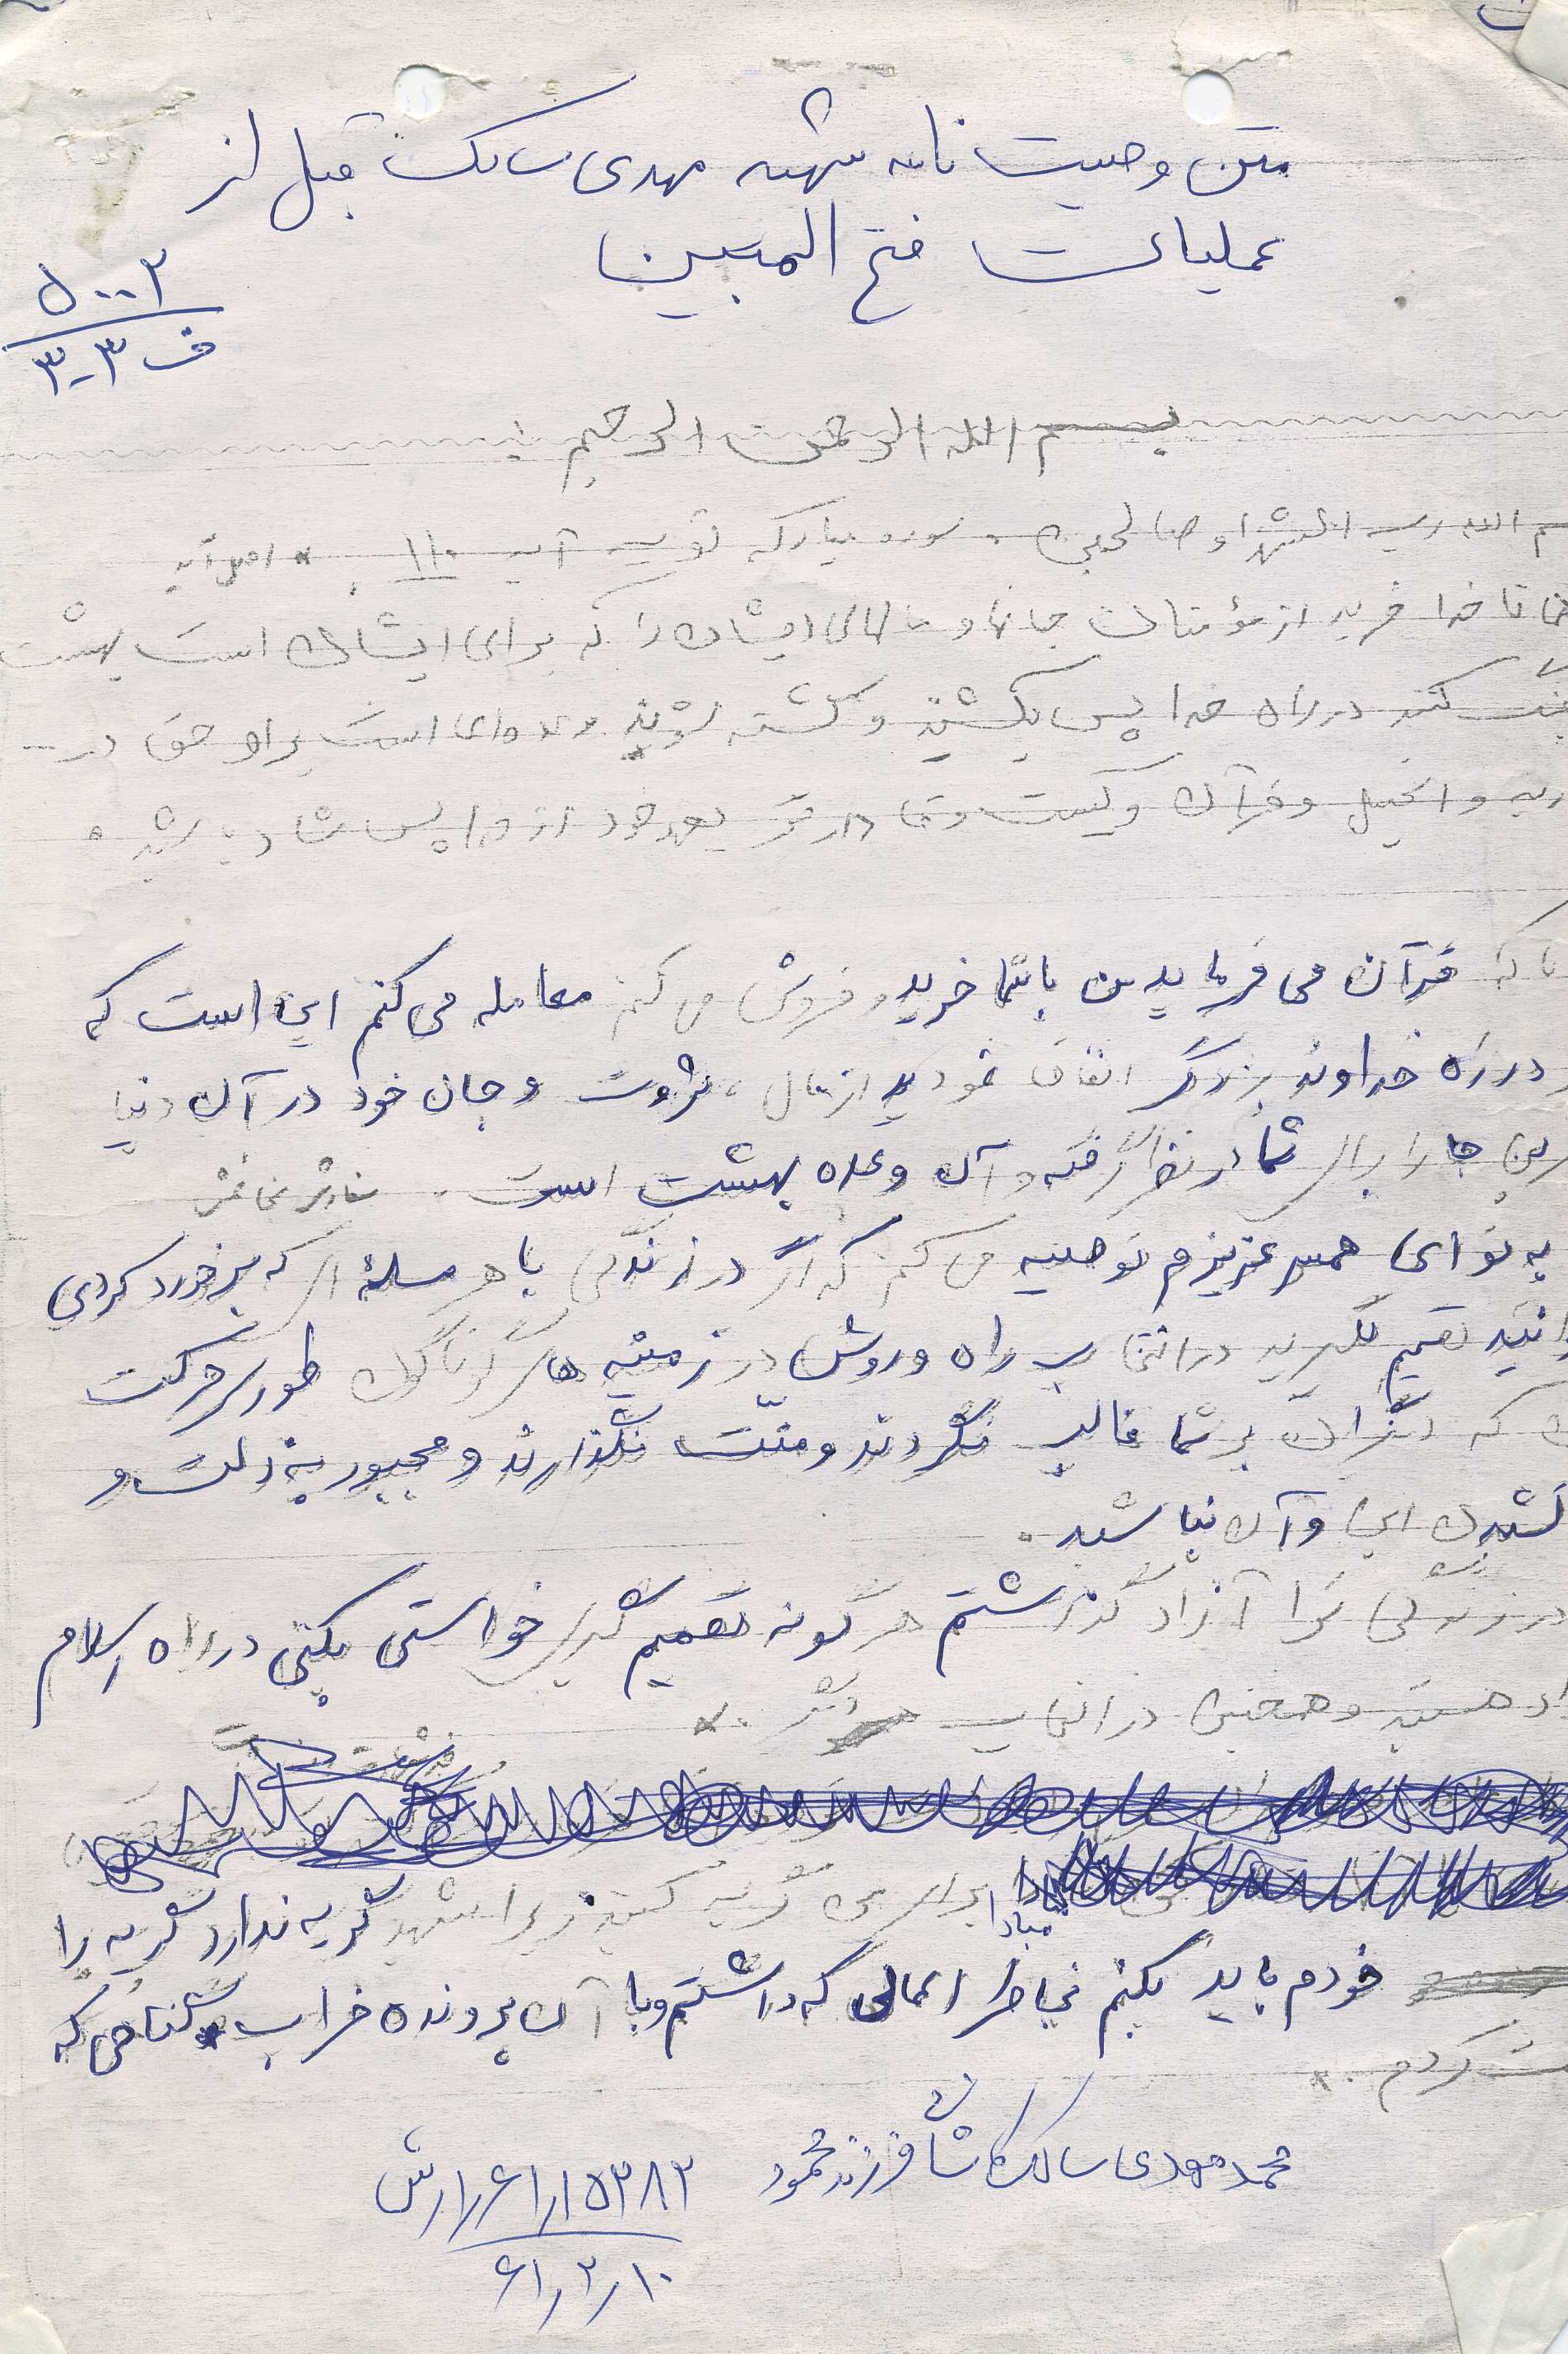 متن وصیت نامه شهید مهدی سالک قبل از
عملیات فتح المبین
۵۰۰۲
ف ۳-۳
بسم الله الرحمن الرحیم
بسم الله رب الشهدا و صالحین . سوره مبارکه توبه آیه ۱۱۰ . اصل آیه
همانا خدا خرید از مؤمنان جانها و مالهای ایشان را که برای ایشان است بهشت
جنگ کنند در راه خدا پس بکشند و کشته شوند وعده‌ای است بر او حق در ...
و انجیل و قرآن و کیست وفا دارتر بعهد خود از خدا پس شاد باشید .
که قرآن می فرماید من با شما خرید و فروش می کنم معامله می کنم این است که
در راه خداوند بزرگ انفاق نمودید از مال ، ثروت و جان خود در آن دنیا
جا را برای شما در نظر گرفته و آن وعده بهشت است .
به تو ای همسر عزیزم توصیه می کنم که اگر در زندگی با هر مسئله ای که برخورد کردی
تصمیم بگیرید در انتخاب راه و روش در زمینه های گوناگون طوری حرکت
که دیگران بر شما غالب نگردند و منّت نگذارند و مجبور به ذلت و
کشیدن این و آن نباشید .
در زندگی ترا آزاد گذاشتم هر گونه تصمیم گیری خواستی بکنی در راه اسلام
آزاد هستید و همچنین در انتخاب
مبادا برای من گریه کنید زیرا شهید گریه ندارد گریه را
خودم باید بکنم بخاطر اعمالی که داشتم و با آن پرونده خراب گناهی که
کردم .
محمد مهدی سالک کاشانی فرزند محمود
۶۱٫۲٫۱۰